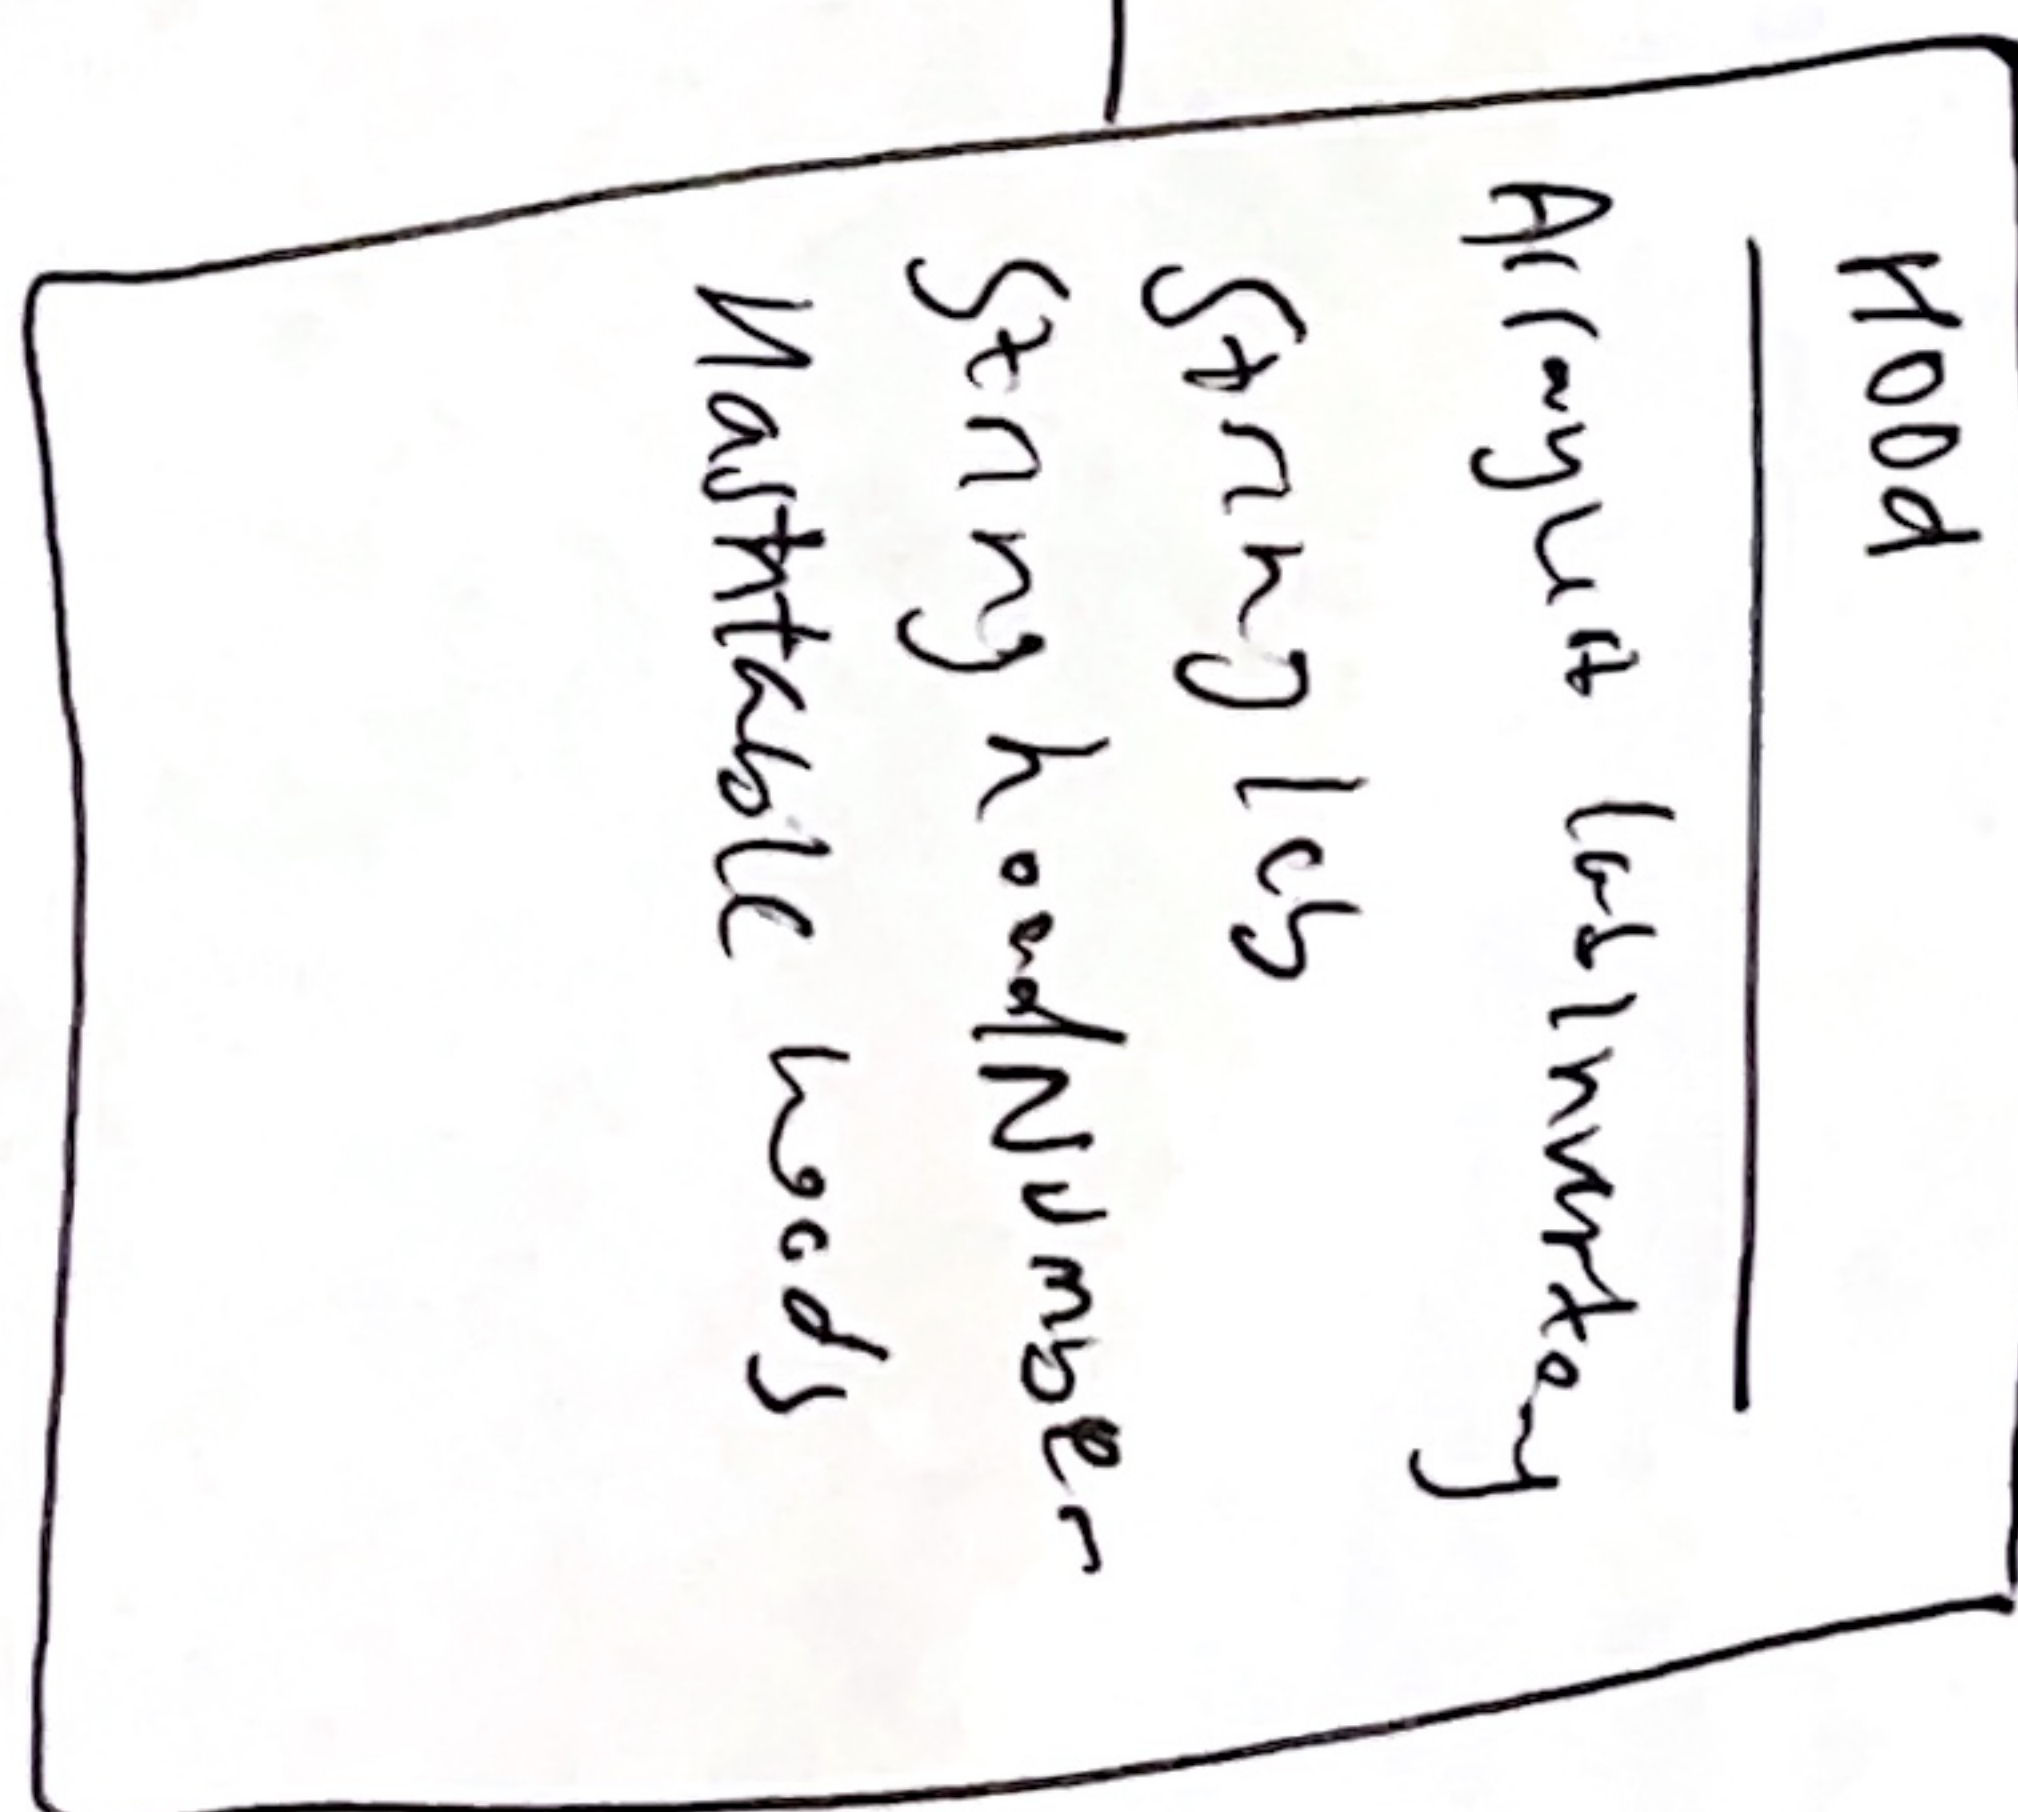 Hood
ArrayList labInventory
String lab
String hoodNumber
Hashtable hoods